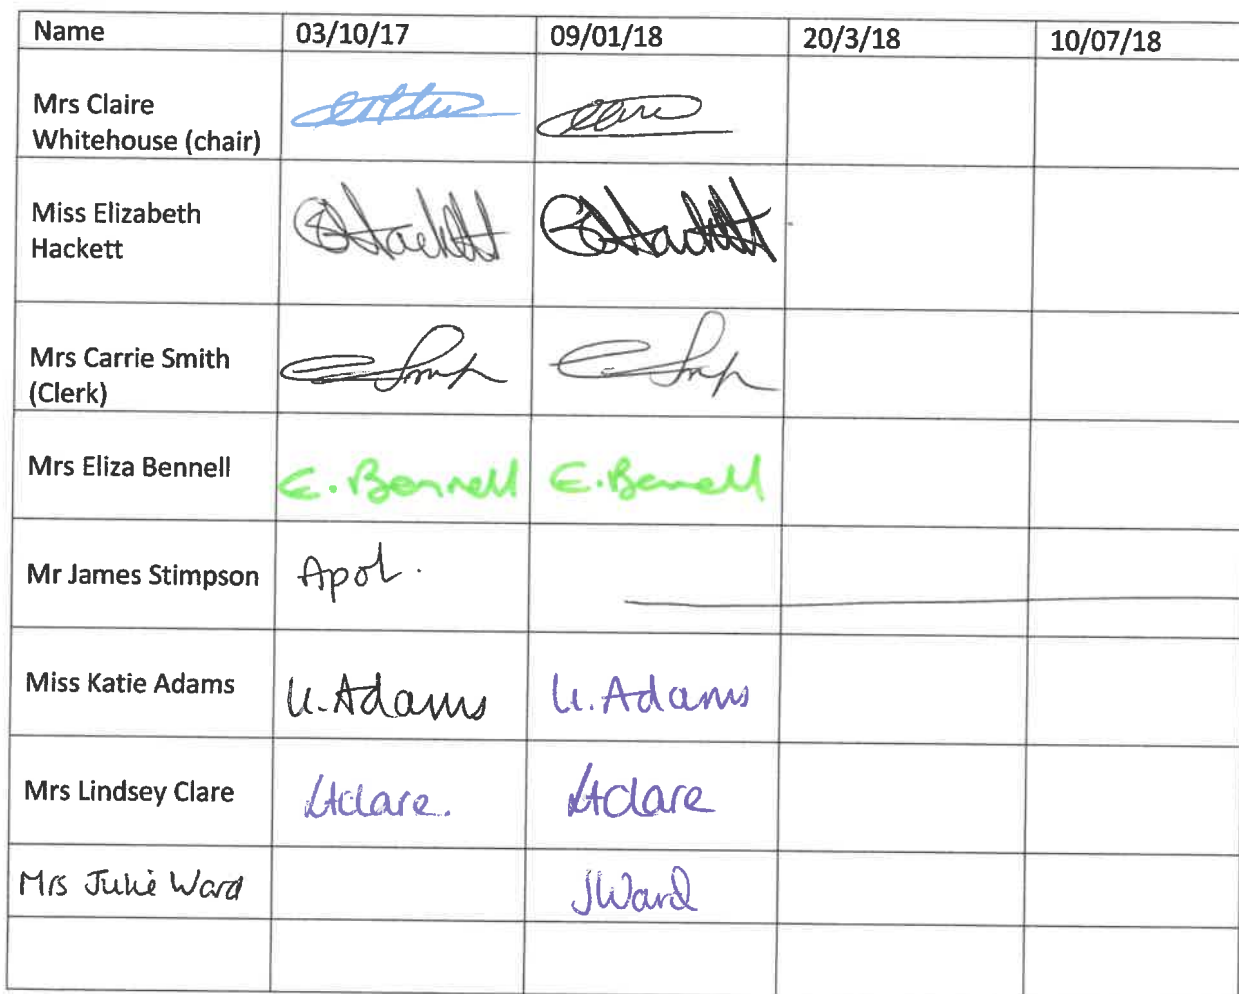 Name 03/10/17 09/01/18 20/3/18 10/07/18
Mrs Claire
Whitehouse (chair)
Miss Elizabeth
Hackett
EHackett EHackett
Mrs Carrie Smith
(Clerk)
Mrs Eliza Bennell
E. Bennell E. Bennell
Mr James Stimpson Apol.
Miss Katie Adams
K. Adams K. Adams
Mrs Lindsey Clare
LAClare. LAClare
Mrs Julie Ward JWard